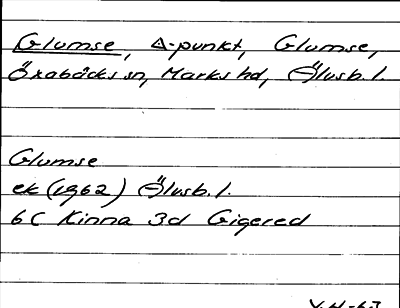 Glumse, Δ-punkt, Glumse,
Öxabäcks sn, Marks hd, Älvsb. l.
Glumse
ek (1962) Älvsb. l.
6C Kinna 3d Gigered